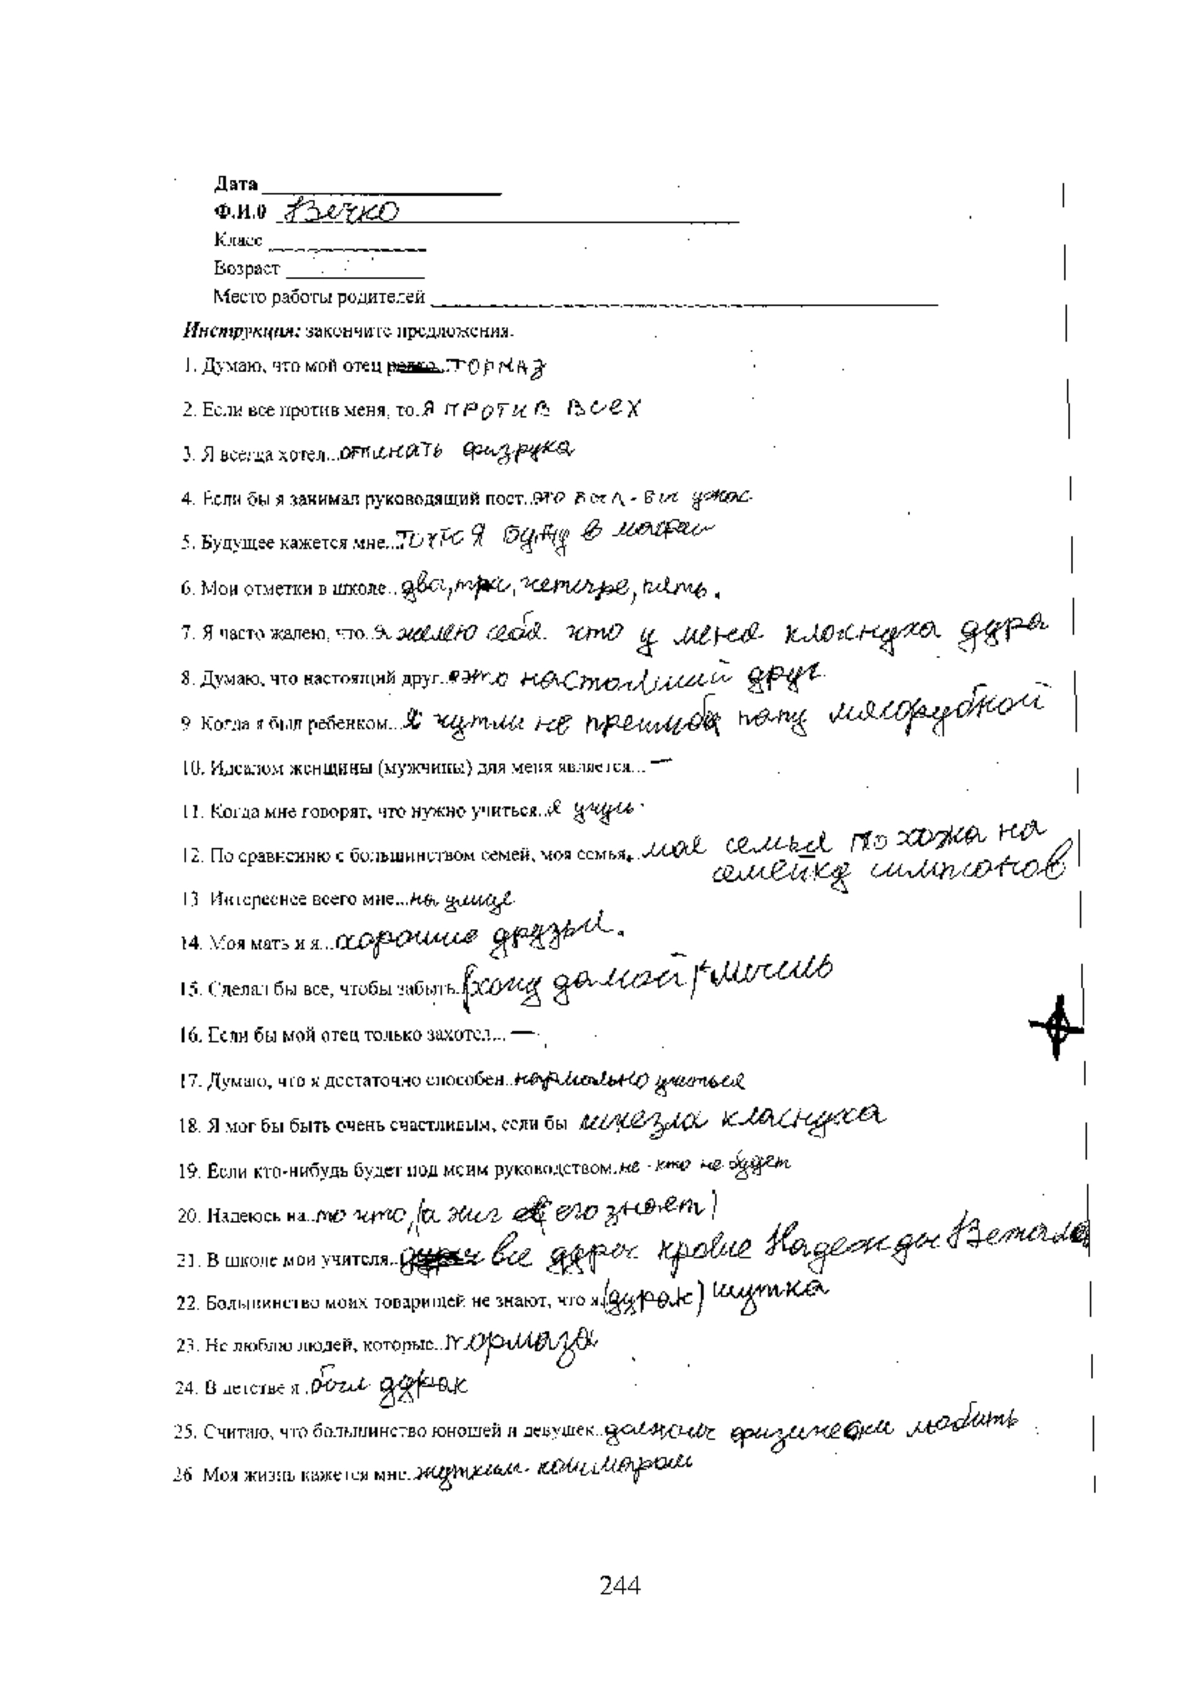 Дата
Ф.И.О Вечко
Класс
Возраст
Место работы родителей
Инструкция: закончите предложения.
1. Думаю, что мой отец редко...тормаз
2. Если все против меня, то.я против всех
3. Я всегда хотел...отпинать физрука
4. Если бы я занимал руководящий пост..это был-бы ужас
5. Будущее кажется мне...
6. Мои отметки в школе..два,три,четыре,пять.
7. Я часто жалею, что..я жалею себя что у меня класнуха дура
8. Думаю, что настоящий друг..это настоящий друг
9 Когда я был ребенком...я чутли не папу мясорубкой
10. Идеалом женщины (мужчины) для меня является... —
11. Когда мне говорят, что нужно учиться..я учусь
12. По сравнению с большинством семей, моя семья..моя семья похожа на
семейку симпсонов
13 Интереснее всего мне...на улице
14. Моя мать и я...хорошие друзья.
15. Сделал бы все, чтобы забыть.
16. Если бы мой отец только захотел... —
17. Думаю, что я достаточно способен..нормально учиться
18. Я мог бы быть очень счастливым, если бы ищезла класнуха
19. Если кто-нибудь будет под моим руководством.не-кто не будет
20. Надеюсь на..то что,(а хиг его знает)
21. В школе мои учителя.. все дуры кроме Надежды
22. Большинство моих товарищей не знают, что я.(дурак) шутка
23. Не люблю людей, которые..тормаза
24. В детстве я .был дурак
25. Считаю, что большинство юношей и девушек..должны физически любить
26 Моя жизнь кажется мне..жутким кошмаром
244